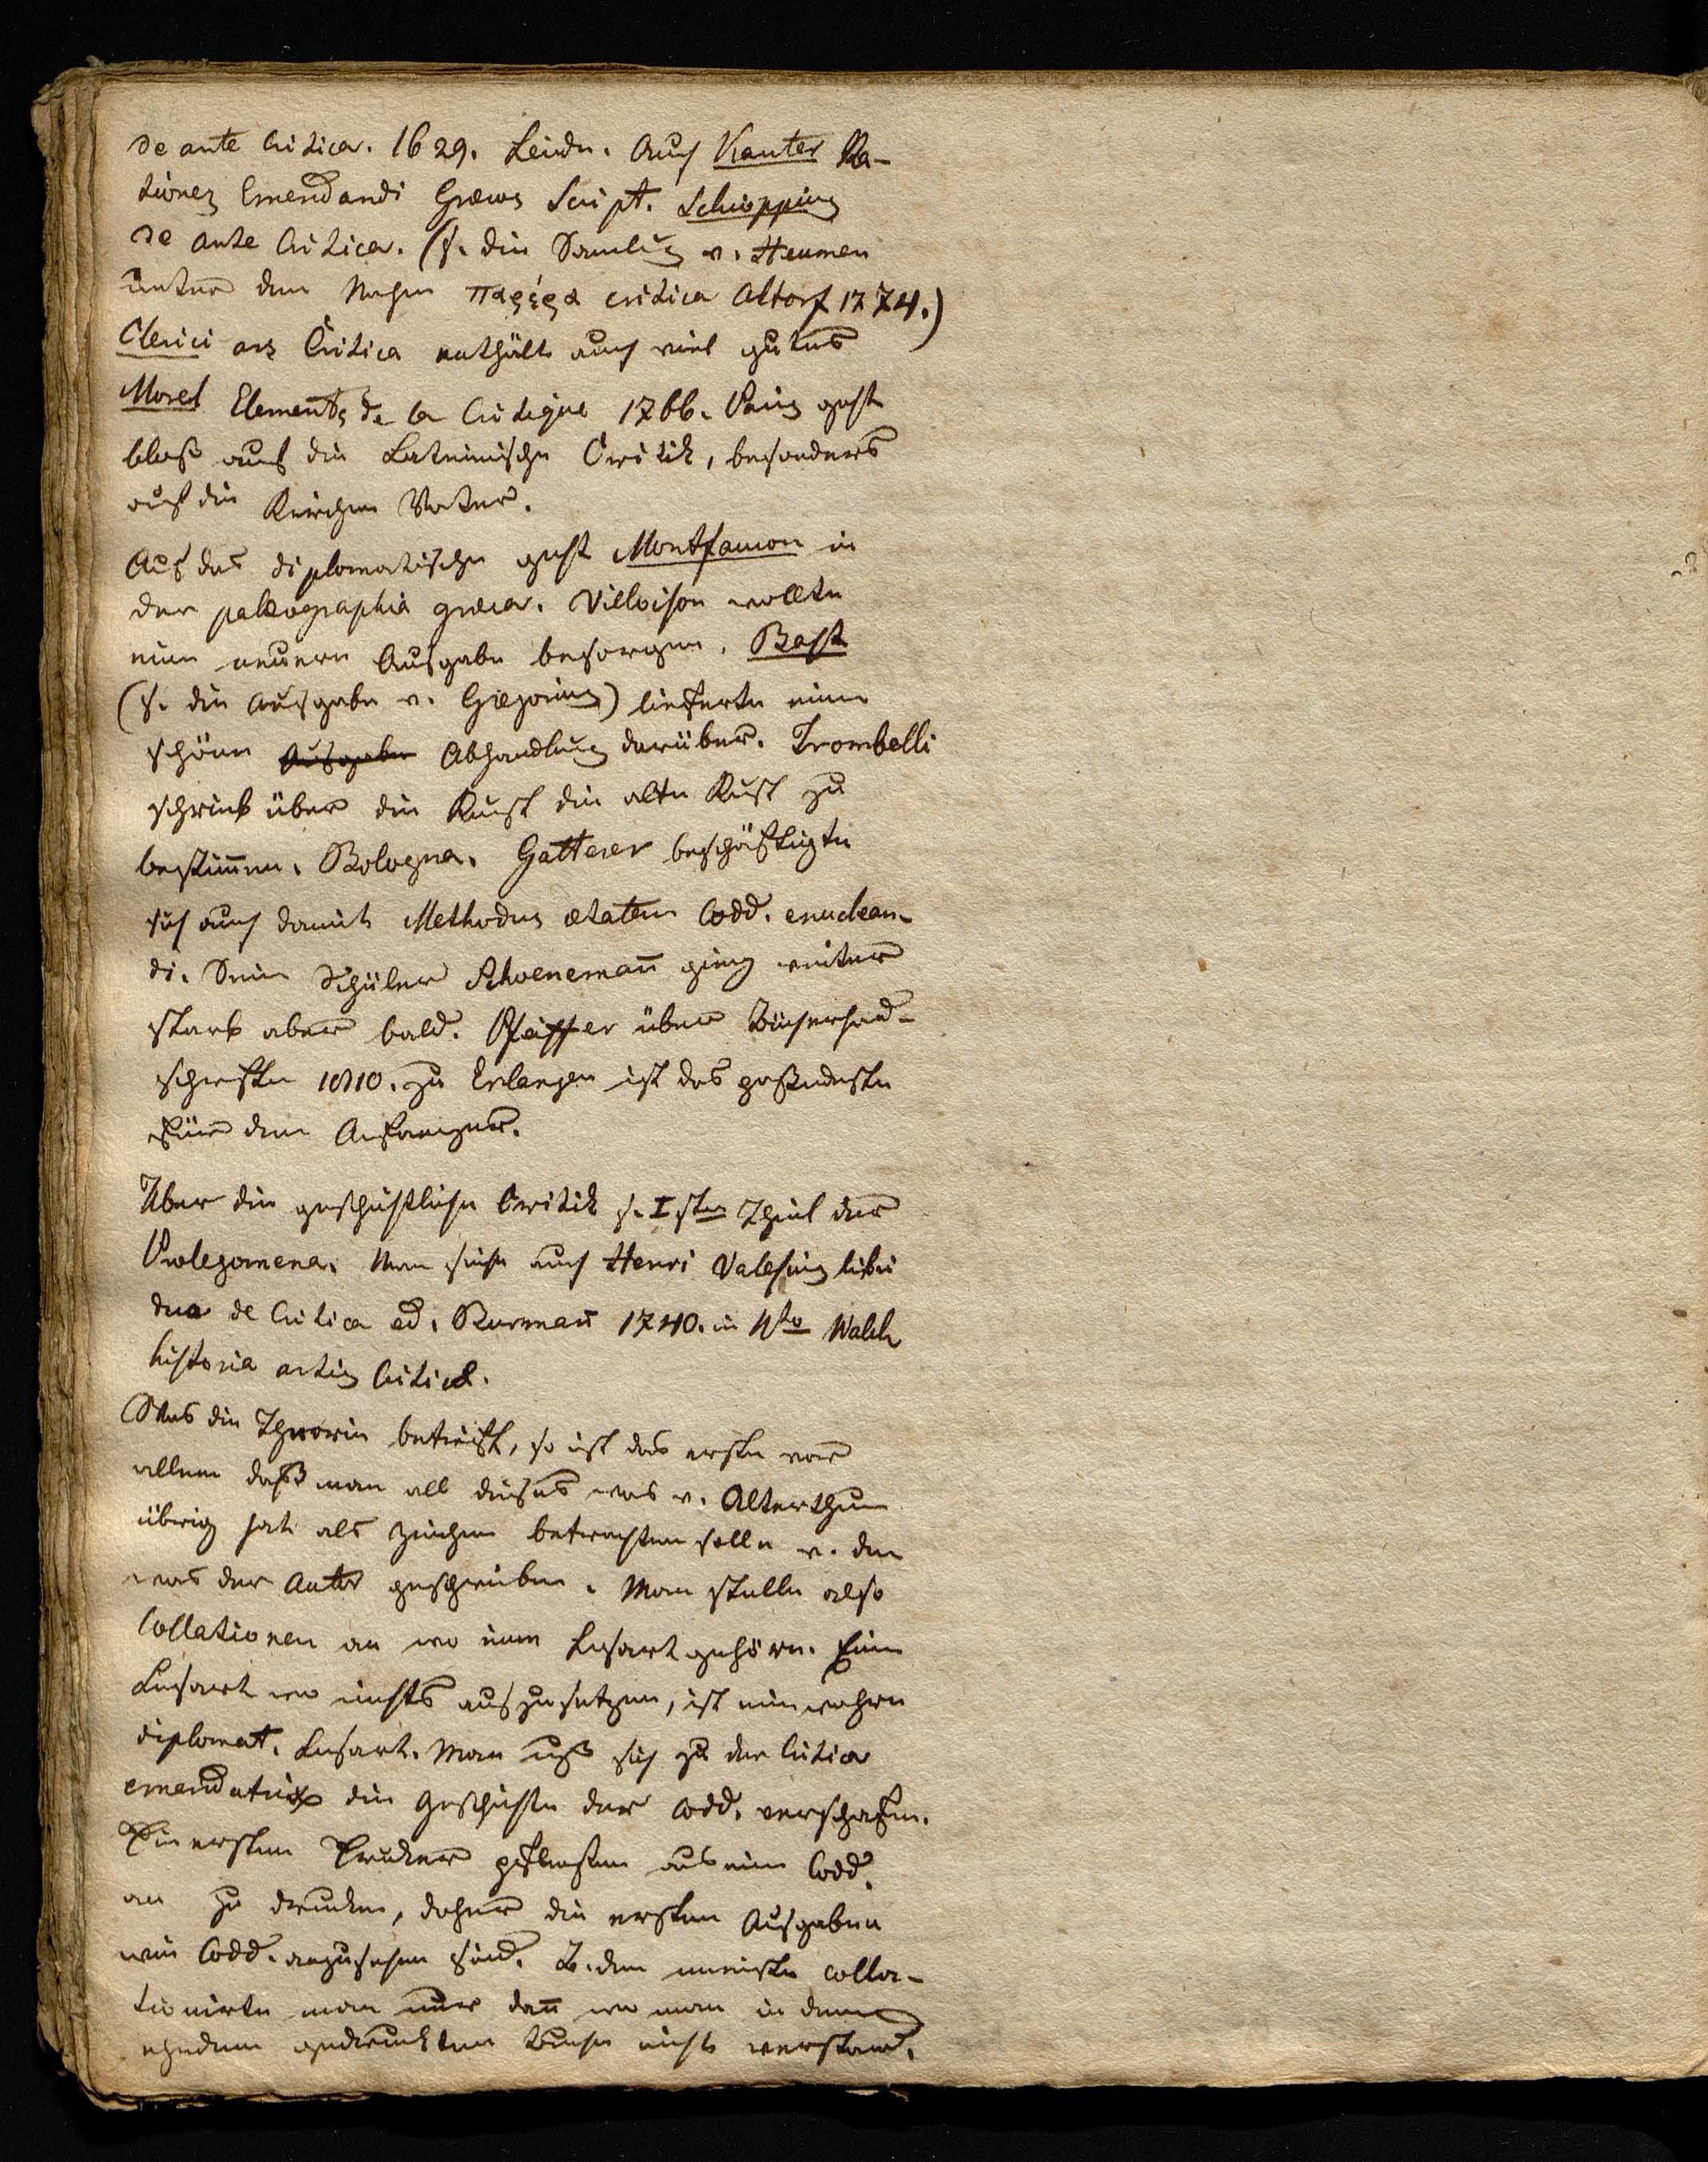 de arte Critica. 1629. Leidn. Auch Kanter Ra-
tiones Emendandi Græcos Script. Schioppius
de arte Critica. (s. die Samlung v. Heumen
unter dem Nahmen παρέργα critica Altorf 1774.)
Clerici ars Critica enthält auch viel gutes
Morel Elements de la Critique 1766. Paris geht
bloß auf die Lateinische Critik, besonders
auf die Kirchen Vater.
Auf das diplomatische geht Montfaucon in
der palæographia græca. Villoison wollte
eine neuere Ausgabe besorgen. Bast
(s. die Ausgabe v. Gregorius) lieferte eine
schöne Ausgabe Abhandlung darüber. Trombelli
schrieb über die Kunst die alte Kust zu
bestim̄en. Bologna. Gatterer beschäftigte
sich auch damit Methodus ætatem Codd. enuclean-
di. Sein Schüler Schoenemañ ging weiter
starb aber bald. Pfeiffer über Bücherhand-
schriften 1810. zu Erlangen ist das paßendste
für den Anfaenger.
Über die geschichtliche Critik s. Isten Theil der
Prolegomena. Man siehe auch Henri Valesius libri
duo de Critica ed. Burmañ 1740. in 4to Walch
historia artis Criticæ.
Was die Theorie betrifft, so ist das erste vor
allem daß man all dieses was v. Alterthum
übrig hat als Zeichen betrachten solle v. dem
was der Autor geschrieben. Man stelle also
Collationen an wo eine Lesart gehöre. Eine
Lesart wo nichts auszusetzen, ist eine wahre
diplomat. Lesart. Man muß sich zu der Critica
emendatrix die Geschichte der Codd. verschafen.
Die ersten Drucker pflegten aus einem Codd.
an zu drucken, daher die ersten Ausgaben
wie Codd. anzusehen sind. Z. dem meisten colla-
tionirte man nur dañ wo man in dem
ehedem gedruckten Buche nichts verstand.